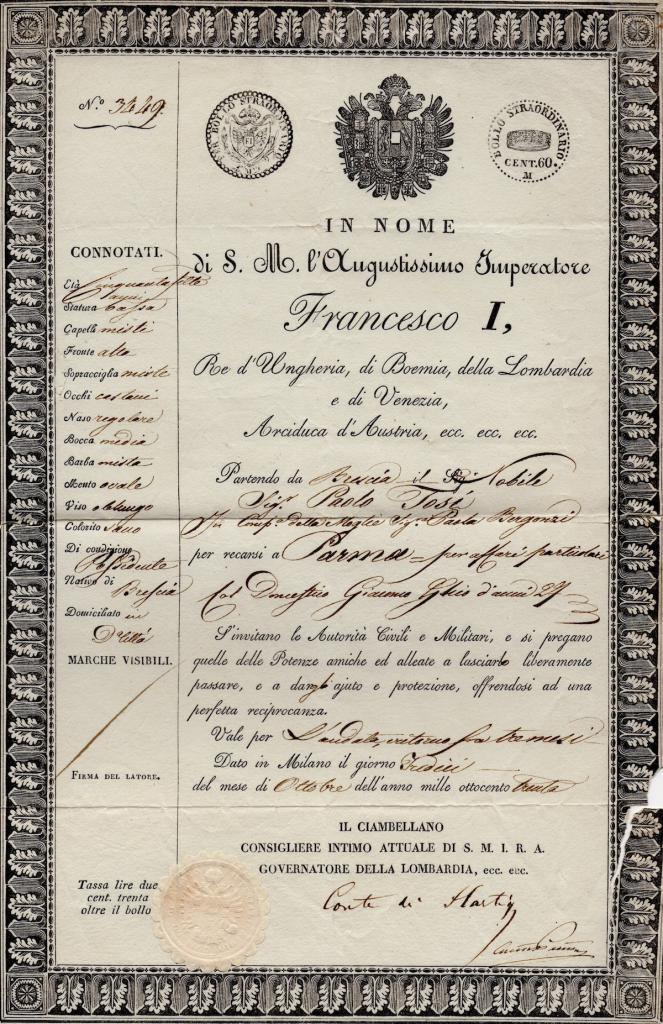 N.º 3449.
BOLLO STRAORDINARIO
BOLLO STRAORDINARIO
CENT. 60.
M
IN NOME
di S. M. l'Augustissimo Imperatore
Francesco I,
Re d'Ungheria, di Boemia, della Lombardia
e di Venezia,
Arciduca d'Austria, ecc. ecc. ecc.
CONNOTATI.
Età Cinquanta
Statura bassa
Capelli misti
Fronte alta
Sopracciglia miste
Occhi castani
Naso regolare
Bocca media
Barba mista
Mento ovale
Viso oblungo
Colorito sano
Di condizione
Possidente
Nativo di
Brescia
Domiciliato in
MARCHE VISIBILI.
FIRMA DEL LATORE.
Tassa lire due
cent. trenta
oltre il bollo
Partendo da Brescia il Nobile
Sig.r Paolo Tosi
della Moglie Sig.a Paola Bergonzi
per recarsi a Parma per affari particolari
Col Domestico Giacomo Ghio d'anni
S'invitano le Autorità Civili e Militari, e si pregano
quelle delle Potenze amiche ed alleate a lasciarlo liberamente
passare, e a dargli ajuto e protezione, offrendosi ad una
perfetta reciprocanza.
Vale per L'andata, ritorno fra tre mesi
Dato in Milano il giorno Tredici
del mese di Ottobre dell'anno mille ottocento trenta
IL CIAMBELLANO
CONSIGLIERE INTIMO ATTUALE DI S. M. I. R. A.
GOVERNATORE DELLA LOMBARDIA, ecc. ecc.
Conte di Hartig